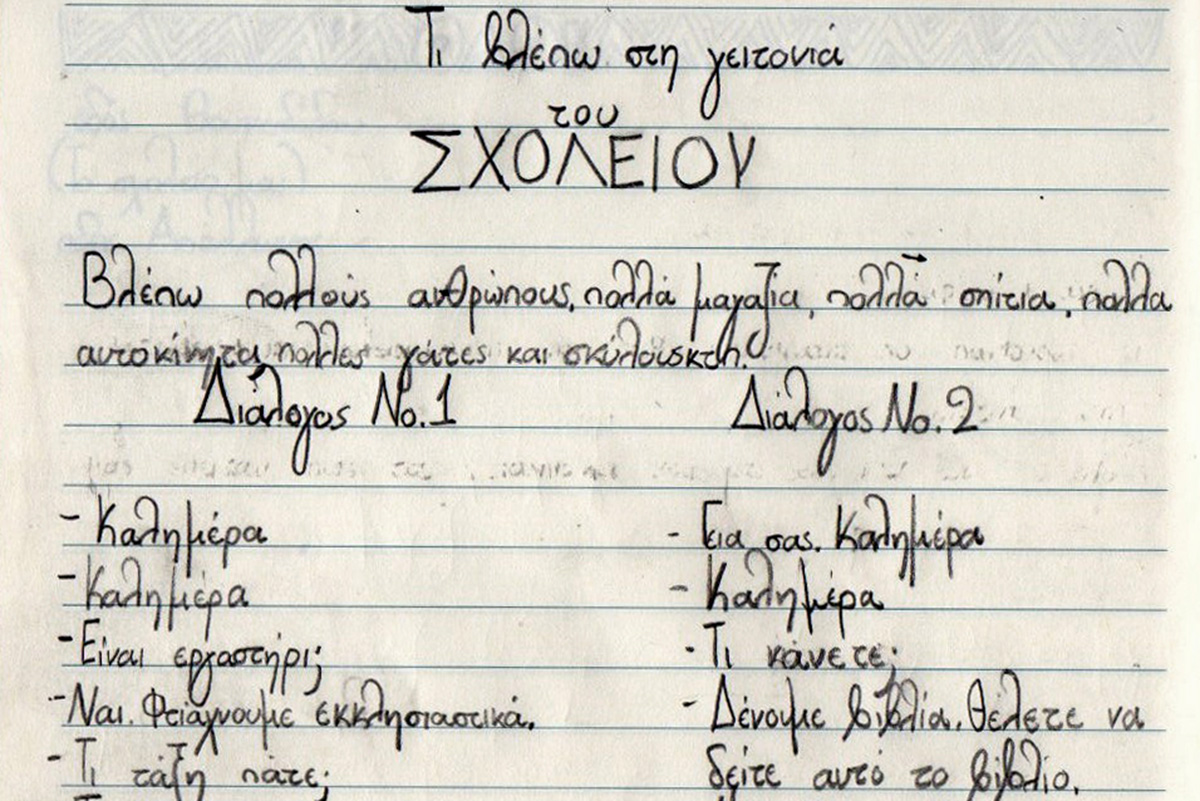 Τι βλέπω στη γειτονιά
του
ΣΧΟΛΕΙΟΝ
Βλέπω πολλούς ανθρώπους, πολλά μαγαζιά, πολλά σπίτια, πολλα
αυτοκίνητα, πολλες γάτες και σκύλους κτλ.
Διάλογος Νο. 1
- Καλημέρα
- Καλημέρα
- Είναι εργαστήρι;
- Ναι. Φτιάχνουμε εκκλησιαστικά.
- Τι τάξη πάτε;
Διάλογος Νο. 2
- Γεια σας. Καλημέρα
- Καλημέρα
- Τι κάνετε;
- Δένουμε βιβλία. Θέλετε να
δείτε αυτό το βιβλίο.